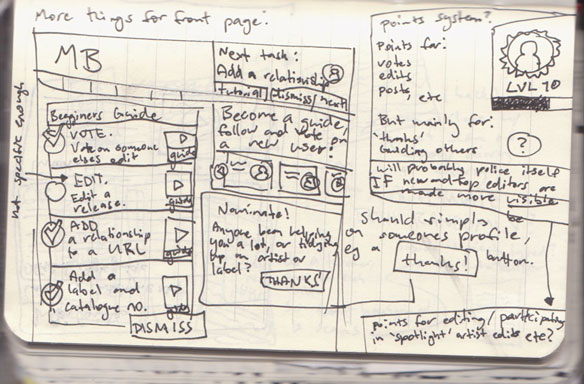 More things for front page:
MB
Next task:
Add a relationship
tutorial/dismiss/next
not specific enough
Begginers Guide
VOTE.
Vote on someone
elses edit
guide
EDIT.
Edit a
release.
guide
ADD
a relationship
to a URL
guide
Add a
label and
catalogue no.
guide
DISMISS
Become a guide,
follow and vote on
a new user!
Nominate!
Anyone been helping
you a lot, or tidying
up an artist or
label?
THANKS!
points system?
points for:
votes
edits
posts, etc
But mainly for:
'thanks'
Guiding others
LVL 10
?
will probably police itself
IF new and top editors are
made more visible
Should simply be
on someones profile,
eg a thanks! button.
points for editing/participating
in 'spotlight' artist edits etc?